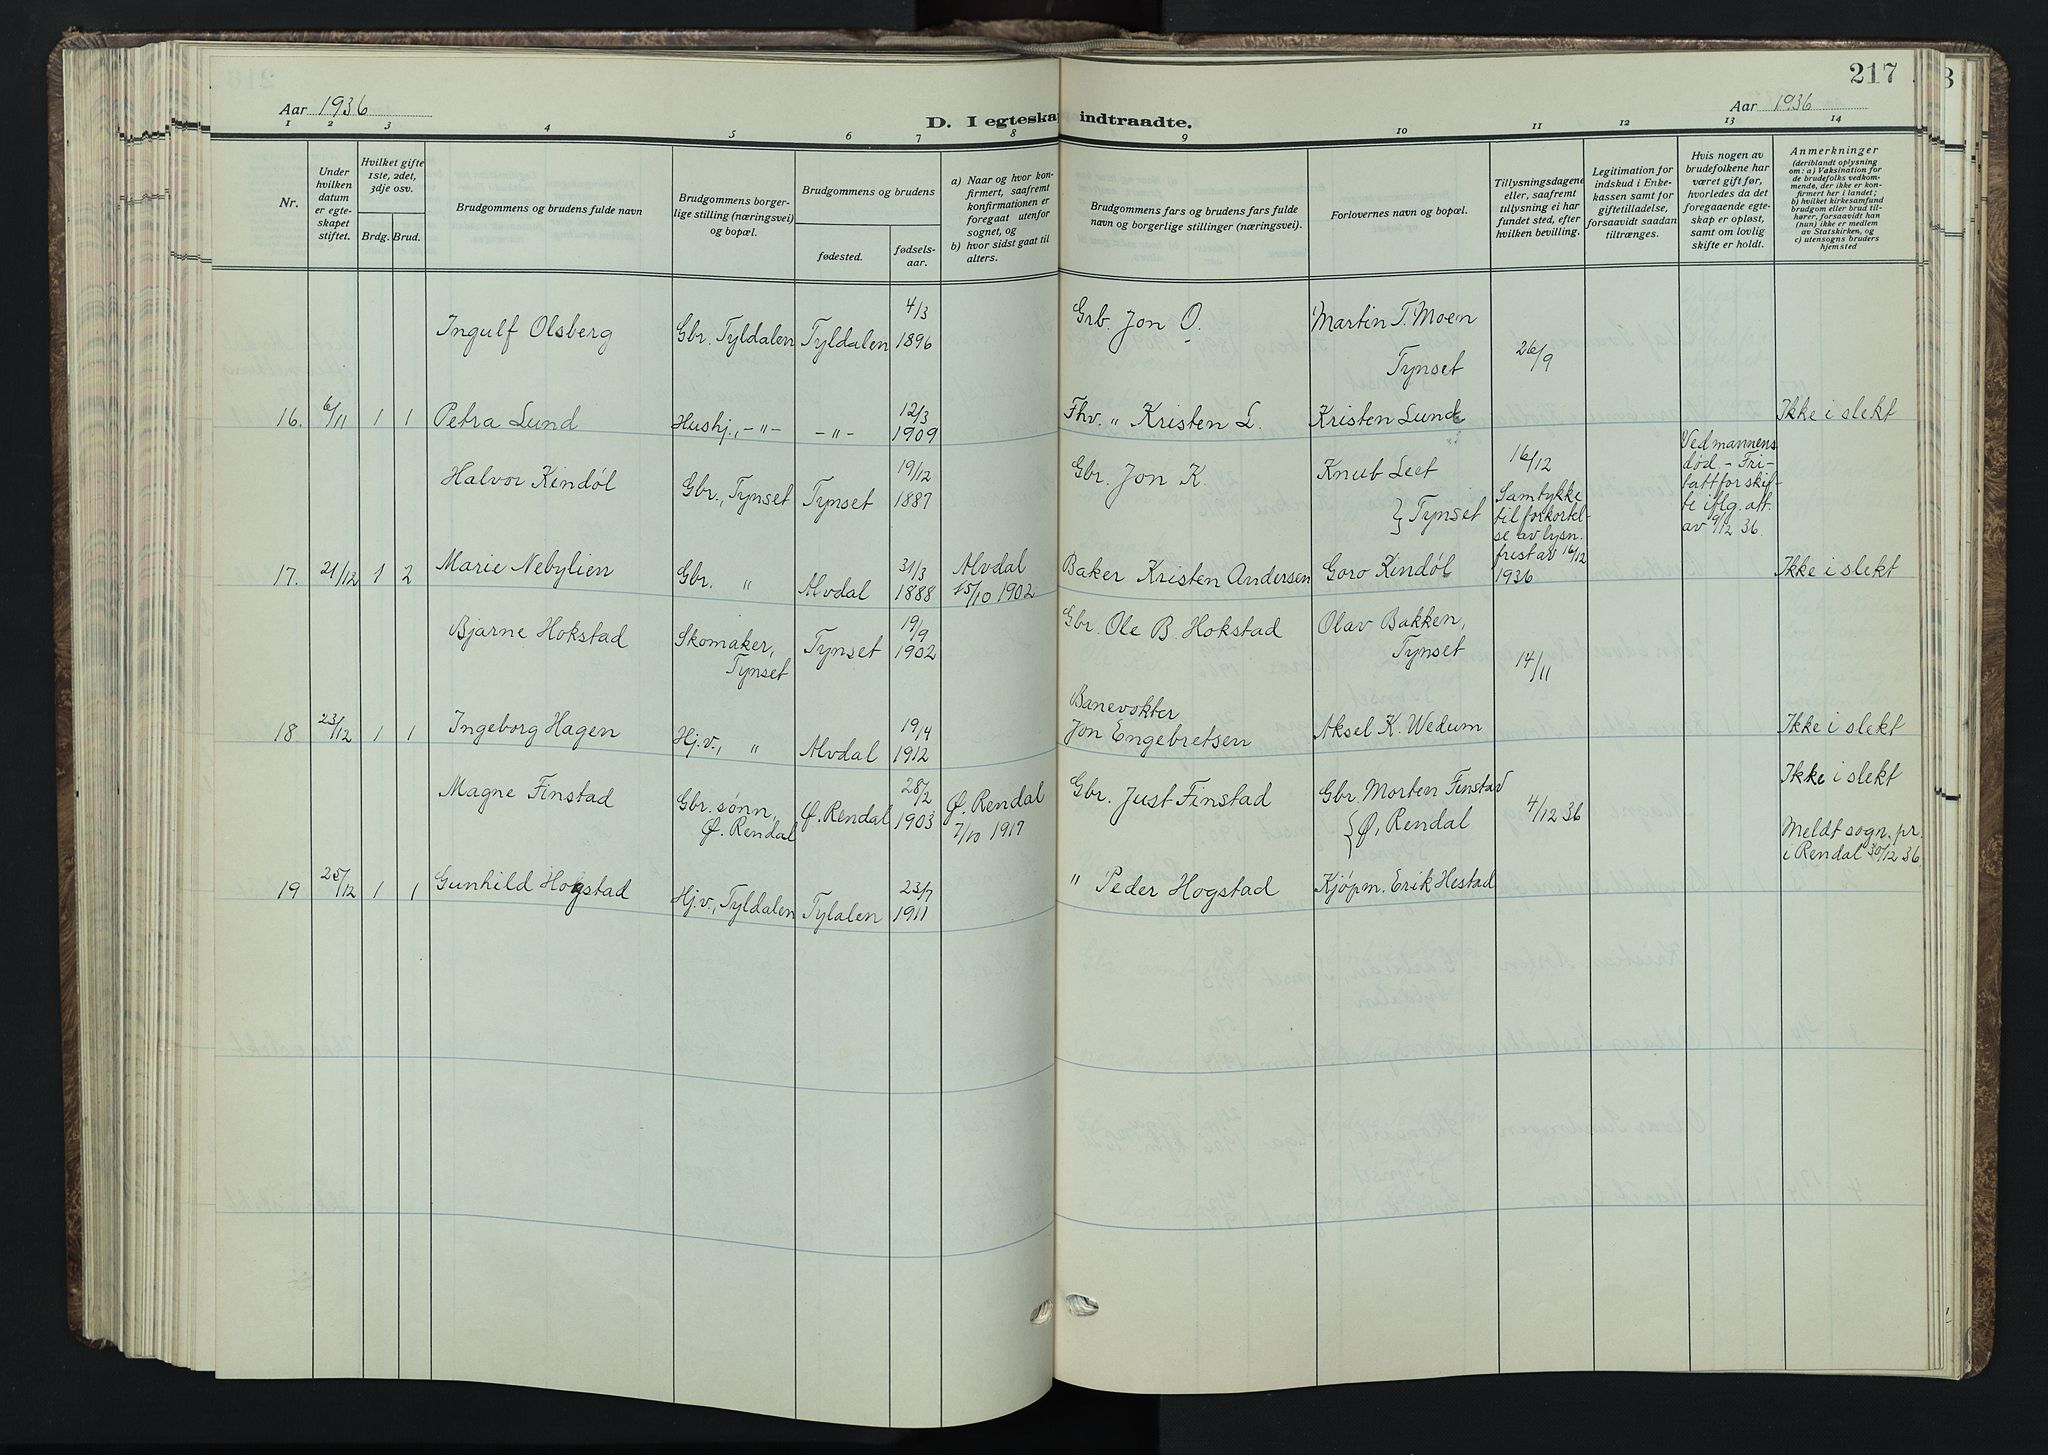 217
Aar 1936
D. I egteskap indtraadte.
Aar 1936
1 2 3 4 5 6 7 8 9 10 11 12 13 14
Nr.
Under
hvilken
datum
er egte-
skapet
stiftet.
Hvilket gifte
1ste, 2det,
3dje osv.
Brdg. Brud.
Brudgommens og brudens fulde navn
Brudgommens borger-
lige stilling (næringsvei)
og bopæl.
Brudgommens og brudens
fødested.
fødsels-
aar.
a) Naar og hvor kon-
firmert, saafremt
konfirmationen er
foregaat utenfor
sognet, og
b) hvor sidst gaat til
alters.
Brudgommens fars og brudens fars fulde
navn og borgerlige stillinger (næringsvei).
Forlovernes navn og bopæl.
Tillysningsdagene
eller, saafremt
tillysning ei har
fundet sted, efter
hvilken bevilling.
Legitimation for
indskud i Enke-
kassen samt for
giftetilladelse,
forsaavidt saadan
tiltrænges.
Hvis nogen av
brudefolkene har
været gift før,
hvorledes da det
foregaaende egte-
skap er opløst,
samt om lovlig
skifte er holdt.
Anmerkninger
(deriblandt oplysning
om: a) Vaksination for
de brudefolks vedkom-
mende, der ikke er kon-
firmert her i landet;
b) hvilket kirkesamfund
brudgom eller brud til-
hører, forsaavidt han
(hun) ikke er medlem
av Statskirken, og
c) utensogns bruders
hjemsted
Ingulf Olsberg
Gbr. Tyldalen
Tyldalen
4/3
1896
Grb. Jon O.
Martin T. Moen
Tynset
26/9
16. 6/11 1 1
Petra Lund
Hushj., -"-
-"-
12/3
1909
Fhv. " Kristen L.
Kristen Lund
"
Ikke i slekt
Halvor Kindøl
Gbr., Tynset
Tynset
19/12
1887
Gbr. Jon K.
Knut Leet
} Tynset
16/12
Samtykke
til forkortel-
se av lysn.
frist av 16/12
1936
Ved mannens
død. - Fri-
tatt for skif-
te iflg. att.
av 9/12 36.
17. 21/12 1 2
Marie Nebylien
Gbr. "
Alvdal
31/3
1888
Alvdal
15/10 1902
Baker Kristen Andersen
Goro Kindøl
Ikke i slekt
Bjarne Hokstad
Skomaker,
Tynset
Tynset
19/9
1902
Gbr. Ole B. Hokstad
Olav Bakken,
Tynset
14/11
18 23/12 1 1
Ingeborg Hagen
Hj.v., "
Alvdal
19/4
1912
Banevokter
Jon Engebretsen
Aksel K. Wedum
Ikke i slekt
Magne Finstad
Gbr. sønn,
Ø. Rendal
Ø. Rendal
28/2
1903
Ø. Rendal
7/10 1917
Gbr. Just Finstad
Gbr. Morten Finstad
{ Ø. Rendal
4/12 36
Ikke i slekt
Meldt sogn.pr.
i Rendal 30/12 36
19 25/12 1 1
Gunhild Hogstad
Hj.v., Tyldalen
Tylalen
23/7
1911
" Peder Hogstad
Kjøpm. Erik Hestad